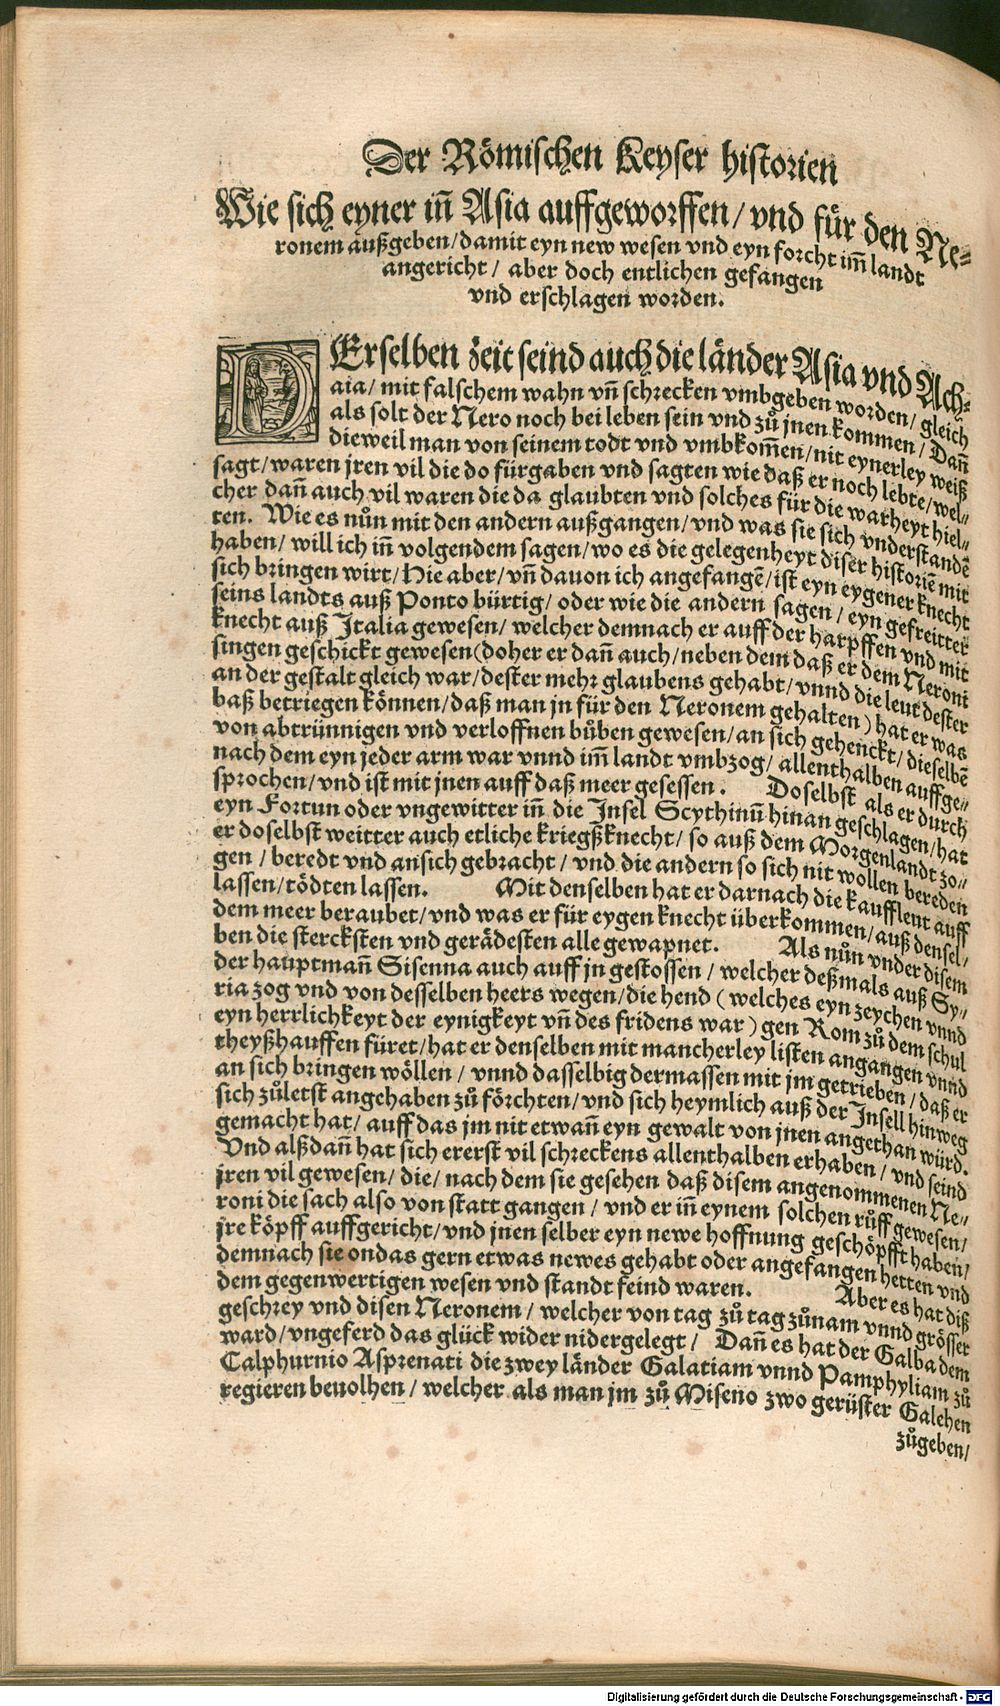 Der Römischen Keyser historien
Wie sich eyner inn̄ Asia auffgeworffen/ vnd für den Ne=
ronem außgeben/ damit eyn new wesen vnd eyn forcht im̄ landt
angericht/ aber doch entlichen gefangen
vnd erschlagen worden.
DErselben zeit seind auch die länder Asia vnd Ach=
aia/ mit falschem wahn vn̄ schrecken vmbgeben worden/ gleich
als solt der Nero noch bei leben sein vnd zů jnen kommen/ Dan̄
dieweil man von seinem todt vnd vmbkom̄en/ nit eynerley weiß
sagt/ waren jren vil die do fürgaben vnd sagten wie daß er noch lebte/ wel=
cher dan̄ auch vil waren die da glaubten vnd solches für die warheyt hiel=
ten. Wie es nůn mit den andern außgangen/ vnd was sie sich vnderstandē
haben/ will ich in̄ volgendem sagen/ wo es die gelegenheyt diser historiē mit
sich bringen wirt/ Hie aber/ vn̄ dauon ich angefangē/ ist eyn eygener knecht
seins landts auß Ponto bürtig/ oder wie die andern sagen/ eyn gefreitter
knecht auß Italia gewesen/ welcher demnach er auff der harpffen vnd mit
singen geschickt gewesen (doher er dan̄ auch/ neben dem daß er dem Neroni
an der gestalt gleich war/ dester mehr glaubens gehabt/ vnnd die leut dester
baß betriegen können/ daß man jn für den Neronem gehalten) hat er was
von abtrünnigen vnd verloffnen bůben gewesen/ an sich gehenckt/ dieselbē
nach dem eyn jeder arm war vnnd im̄ landt vmbzog/ allenthalben auffge=
sprochen/ vnd ist mit jnen auff daß meer gesessen. Doselbst als er durch
eyn Fortun oder vngewitter in̄ die Insel Scythinū hinan geschlagen/ hat
er doselbst weitter auch etliche kriegßknecht/ so auß dem Morgenlandt zo=
gen/ beredt vnd ansich gebracht/ vnd die andern so sich nit wollen bereden
lassen/ tödten lassen. Mit denselben hat er darnach die kauffleut auff
dem meer beraubet/ vnd was er für eygen knecht überkommen/ auß densel=
ben die stercksten vnd gerädesten alle gewapnet. Als nůn vnder disem
der hauptman̄ Sisenna auch auff jn gestossen/ welcher deßmals auß Sy=
ria zog vnd von desselben heers wegen/ die hend (welches eyn zeychen vnnd
eyn herrlichkeyt der eynigkeyt vn̄ des fridens war) gen Rom zů dem schul
theyßhauffen füret/ hat er denselben mit mancherley listen angangen vnnd
an sich bringen wöllen/ vnnd dasselbig dermassen mit jm getrieben/ daß er
sich zůletst angehaben zů förchten/ vnd sich heymlich auß der Insell hinweg
gemacht hat/ auff das jm nit etwan̄ eyn gewalt von jnen angethan würd.
Vnd alßdan̄ hat sich ererst vil schreckens allenthalben erhaben/ vnd seind
jren vil gewesen/ die/ nach dem sie gesehen daß disem angenommenen Ne=
roni die sach also von statt gangen/ vnd er in̄ eynem solchen růff gewesen/
jre köpff auffgericht/ vnd jnen selber eyn newe hoffnung geschöpfft haben/
demnach sie ondas gern etwas newes gehabt oder angefangen hetten vnd
dem gegenwertigen wesen vnd standt feind waren. Aber es hat diß
geschrey vnd disen Neronem/ welcher von tag zů tag zůnam vnnd grösser
ward/ vngeferd das glück wider nidergelegt/ Dan̄ es hat der Galba dem
Calphurnio Asprenati die zwey länder Galatiam vnnd Pamphyliam zů
regieren beuolhen/ welcher als man jm zů Miseno zwo gerüster Galehen
zůgeben/
Digitalisierung gefördert durch die Deutsche Forschungsgemeinschaft - DFG